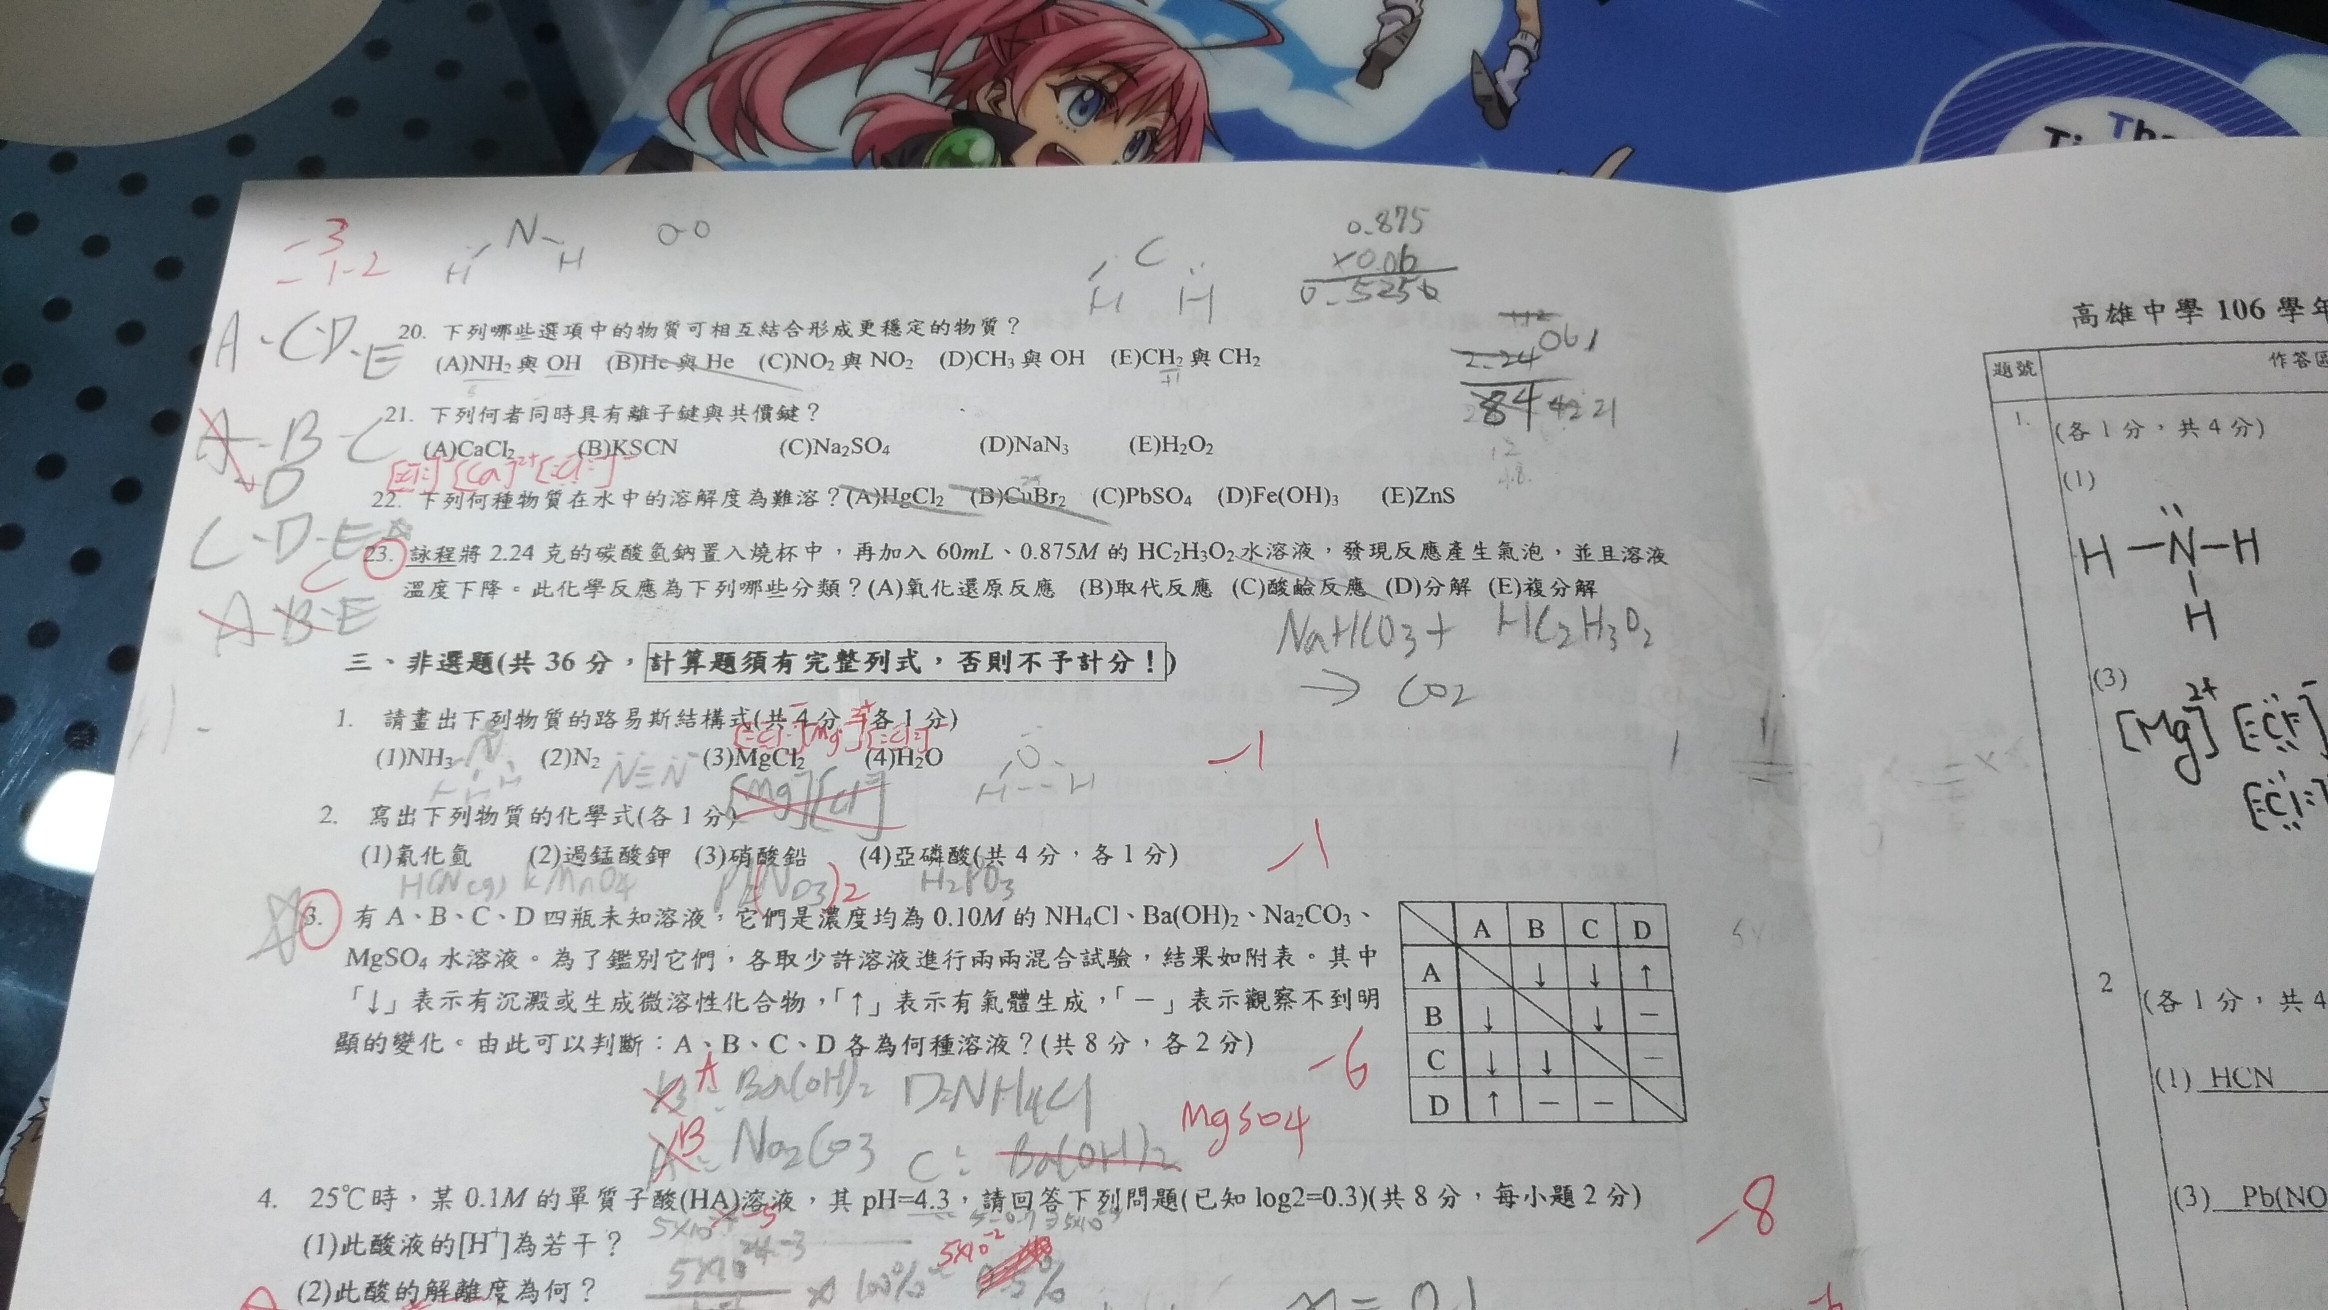 -3
-1-2
N
H H
C
H H
0.875
×0.06
A-CD-E
20. 下列哪些選項中的物質可相互結合形成更穩定的物質？
(A)NH₂與OH (B)He與He (C)NO₂與NO₂ (D)CH₃與OH (E)CH₂與CH₂
2.24
84
21. 下列何者同時具有離子鍵與共價鍵？
A-B-C
D
(A)CaCl₂ (B)KSCN (C)Na₂SO₄ (D)NaN₃ (E)H₂O₂
22. 下列何種物質在水中的溶解度為難溶？(A)HgCl₂ (B)CuBr₂ (C)PbSO₄ (D)Fe(OH)₃ (E)ZnS
C-D-E
23. 詠程將 2.24 克的碳酸氫鈉置入燒杯中，再加入 60mL、0.875M 的 HC₂H₃O₂水溶液，發現反應產生氣泡，並且溶液
溫度下降。此化學反應為下列哪些分類？(A)氧化還原反應 (B)取代反應 (C)酸鹼反應 (D)分解 (E)複分解
C
A B-E
NaHCO₃ + HC₂H₃O₂
→ CO₂
三、非選題(共 36 分，計算題須有完整列式，否則不予計分！)
1. 請畫出下列物質的路易斯結構式(共 4 分，各 1 分)
(1)NH₃ (2)N₂ (3)MgCl₂ (4)H₂O
N≡N
-1
2. 寫出下列物質的化學式(各 1 分)
(1)氰化氫 (2)過錳酸鉀 (3)硝酸鉛 (4)亞磷酸(共 4 分，各 1 分)
HCN(g) KMnO4 Pb(NO3)2 H2PO3
-1
3. 有 A、B、C、D 四瓶未知溶液，它們是濃度均為 0.10M 的 NH₄Cl、Ba(OH)₂、Na₂CO₃、
MgSO₄ 水溶液。為了鑑別它們，各取少許溶液進行兩兩混合試驗，結果如附表。其中
「↓」表示有沉澱或生成微溶性化合物，「↑」表示有氣體生成，「－」表示觀察不到明
顯的變化。由此可以判斷：A、B、C、D 各為何種溶液？(共 8 分，各 2 分)
A B C D
A ↓ ↓ ↑
B ↓ ↓ －
C ↓ ↓ －
D ↑ － －
-6
A: Ba(OH)₂ D=NH4Cl
B: Na₂CO3 C: Ba(OH)₂ MgSO4
4. 25℃時，某 0.1M 的單質子酸(HA)溶液，其 pH=4.3，請回答下列問題(已知 log2=0.3)(共 8 分，每小題 2 分)
-8
(1)此酸液的[H⁺]為若干？
(2)此酸的解離度為何？
高雄中學 106 學年
題號 作答區
1. (各 1 分，共 4 分)
(1)
H－N－H
H
(3)
[Mg]²⁺
2 (各 1 分，共 4
(1) HCN
(3) Pb(NO